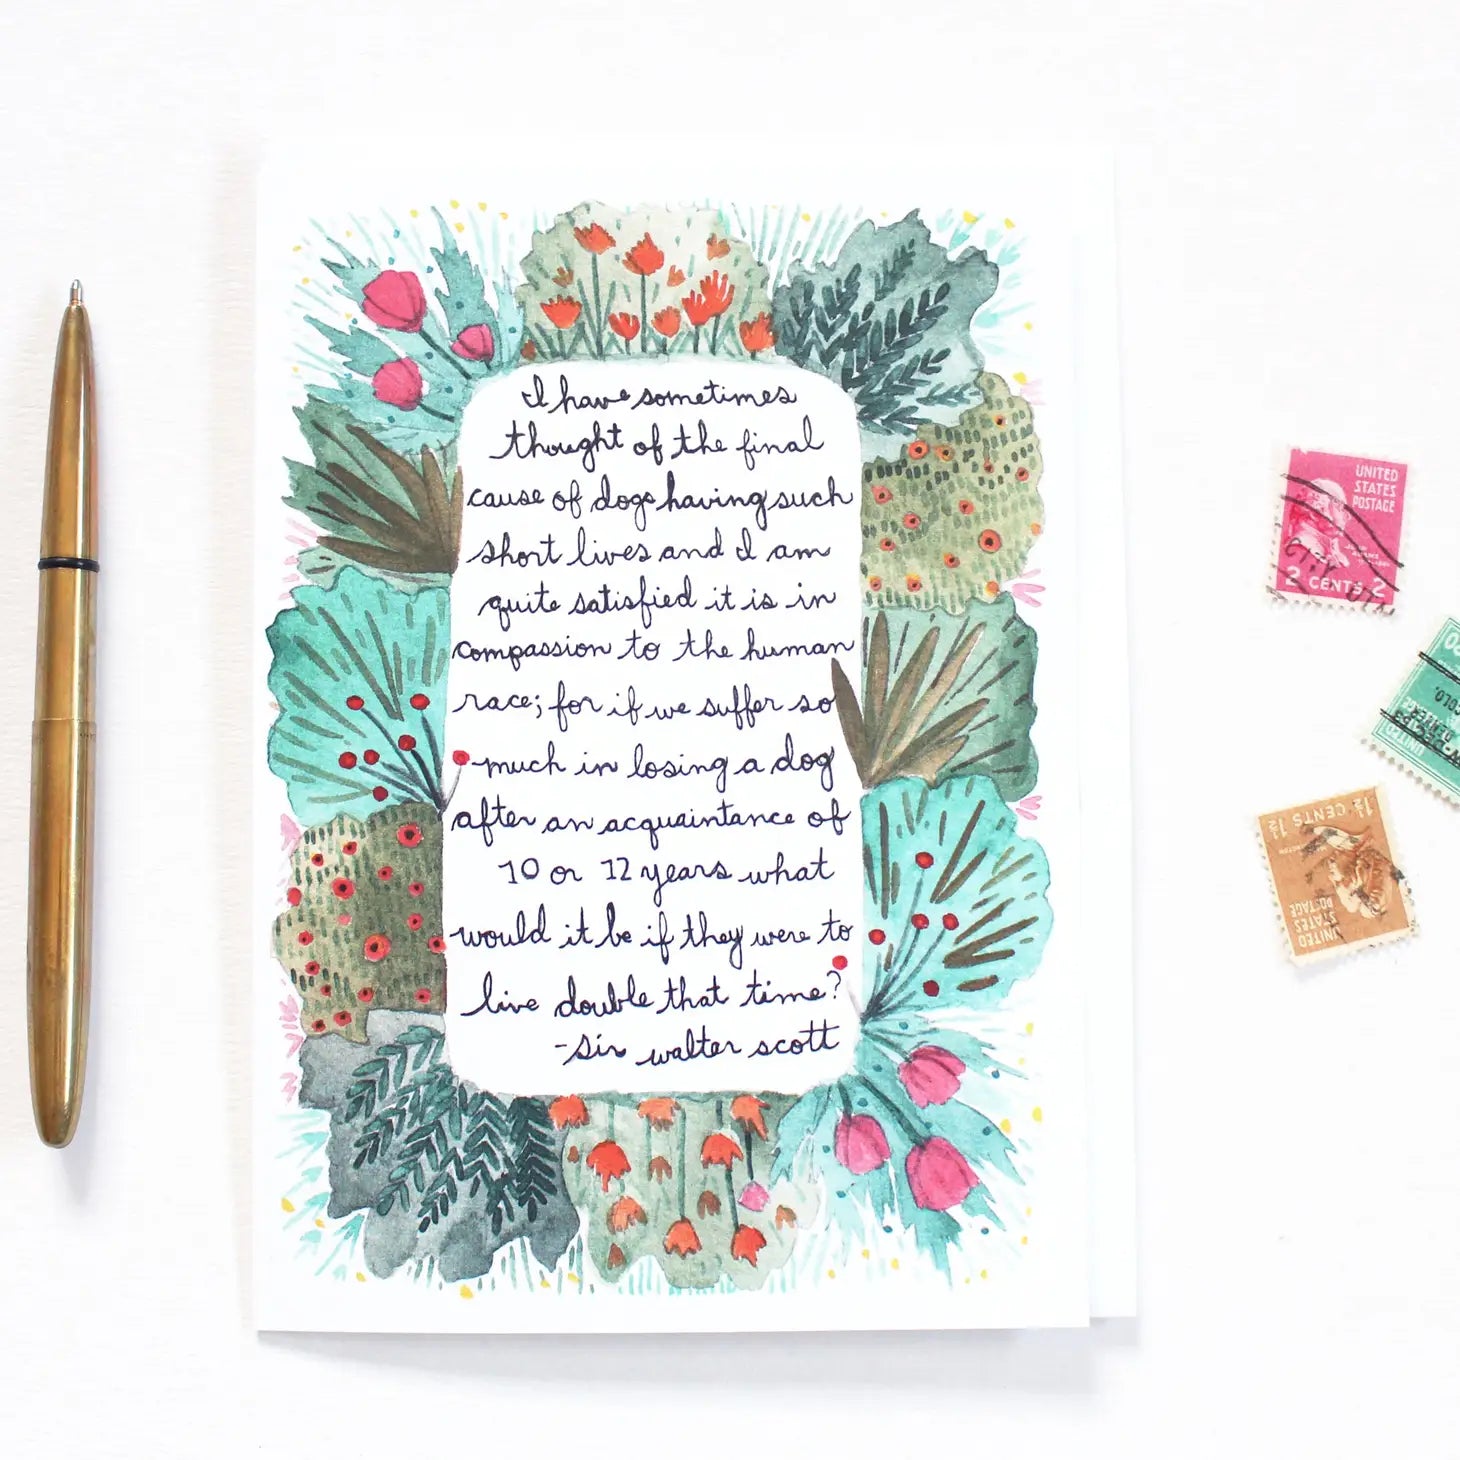 I have sometimes
thought of the final
cause of dogs having such
short lives and I am
quite satisfied it is in
compassion to the human
race; for if we suffer so
much in losing a dog
after an acquaintance of
10 or 12 years what
would it be if they were to
live double that time?
-sir walter scott
UNITED
STATES
POSTAGE
2 CENTS 2
1½ CENTS 1½
UNITED
STATES
POSTAGE